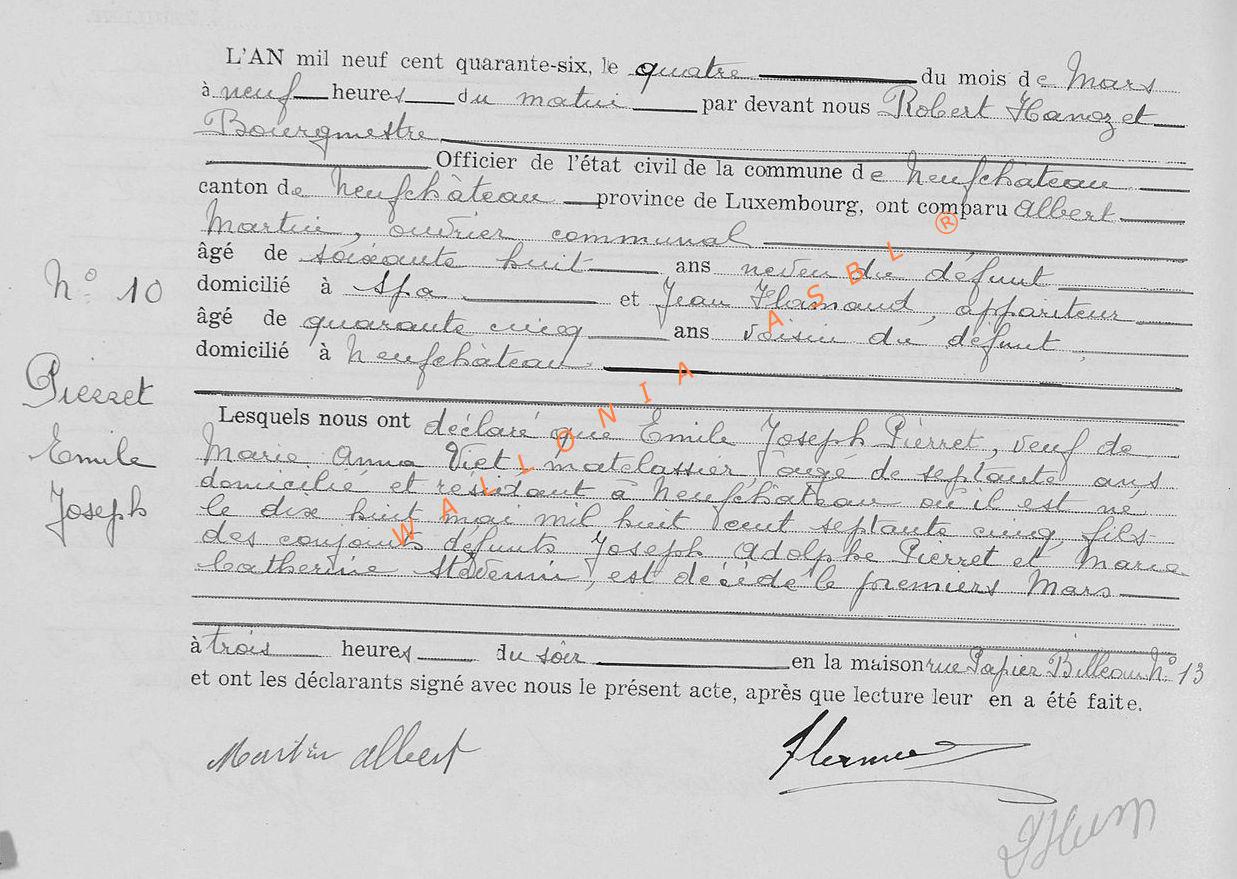 L'AN mil neuf cent quarante-six, le quatre du mois de Mars
à neuf heures du matin par devant nous Robert Hanozet
Bourgmestre
Officier de l'état civil de la commune de Neufchâteau
canton de Neufchâteau province de Luxembourg, ont comparu Albert
Martin, ouvrier communal
âgé de soixante huit ans neveu du défunt
domicilié à Spa et Jean Hamaud, appariteur
âgé de quarante cinq ans voisin du défunt,
domicilié à Neufchâteau
N° 10
Pierret
Emile
Joseph
Lesquels nous ont déclaré que Emile Joseph Pierret, veuf de
Marie Anna Viet, matelassier, agé de septante ans
domicilié et résidant à Neufchâteau où il est né
le dix huit mai mil huit cent septante cinq, fils
des conjoints défunts Joseph Adolphe Pierret et Maria
Catherine Stévenin, est décédé le premiers Mars
à trois heures du soir en la maison rue Papier Billeau N° 13
et ont les déclarants signé avec nous le présent acte, après que lecture leur en a été faite.
Martin Albert
WALLONIA ASBL ®